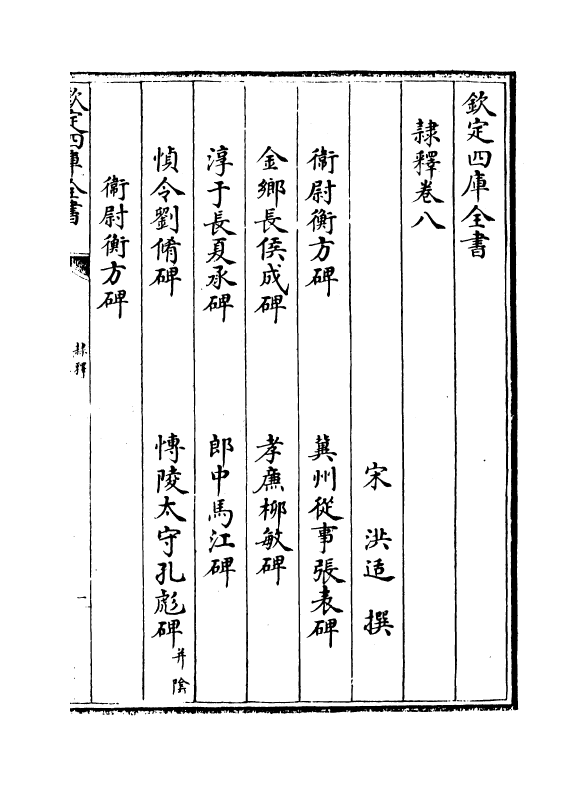 欽定四庫全書
隸釋卷八
宋 洪适 撰
衛尉衡方碑 冀州從事張表碑
金鄉長侯成碑 孝廉柳敏碑
淳于長夏承碑 郎中馬江碑
慎令劉脩碑 博陵太守孔彪碑 并陰
衛尉衡方碑
欽定四庫全書
隸釋
一